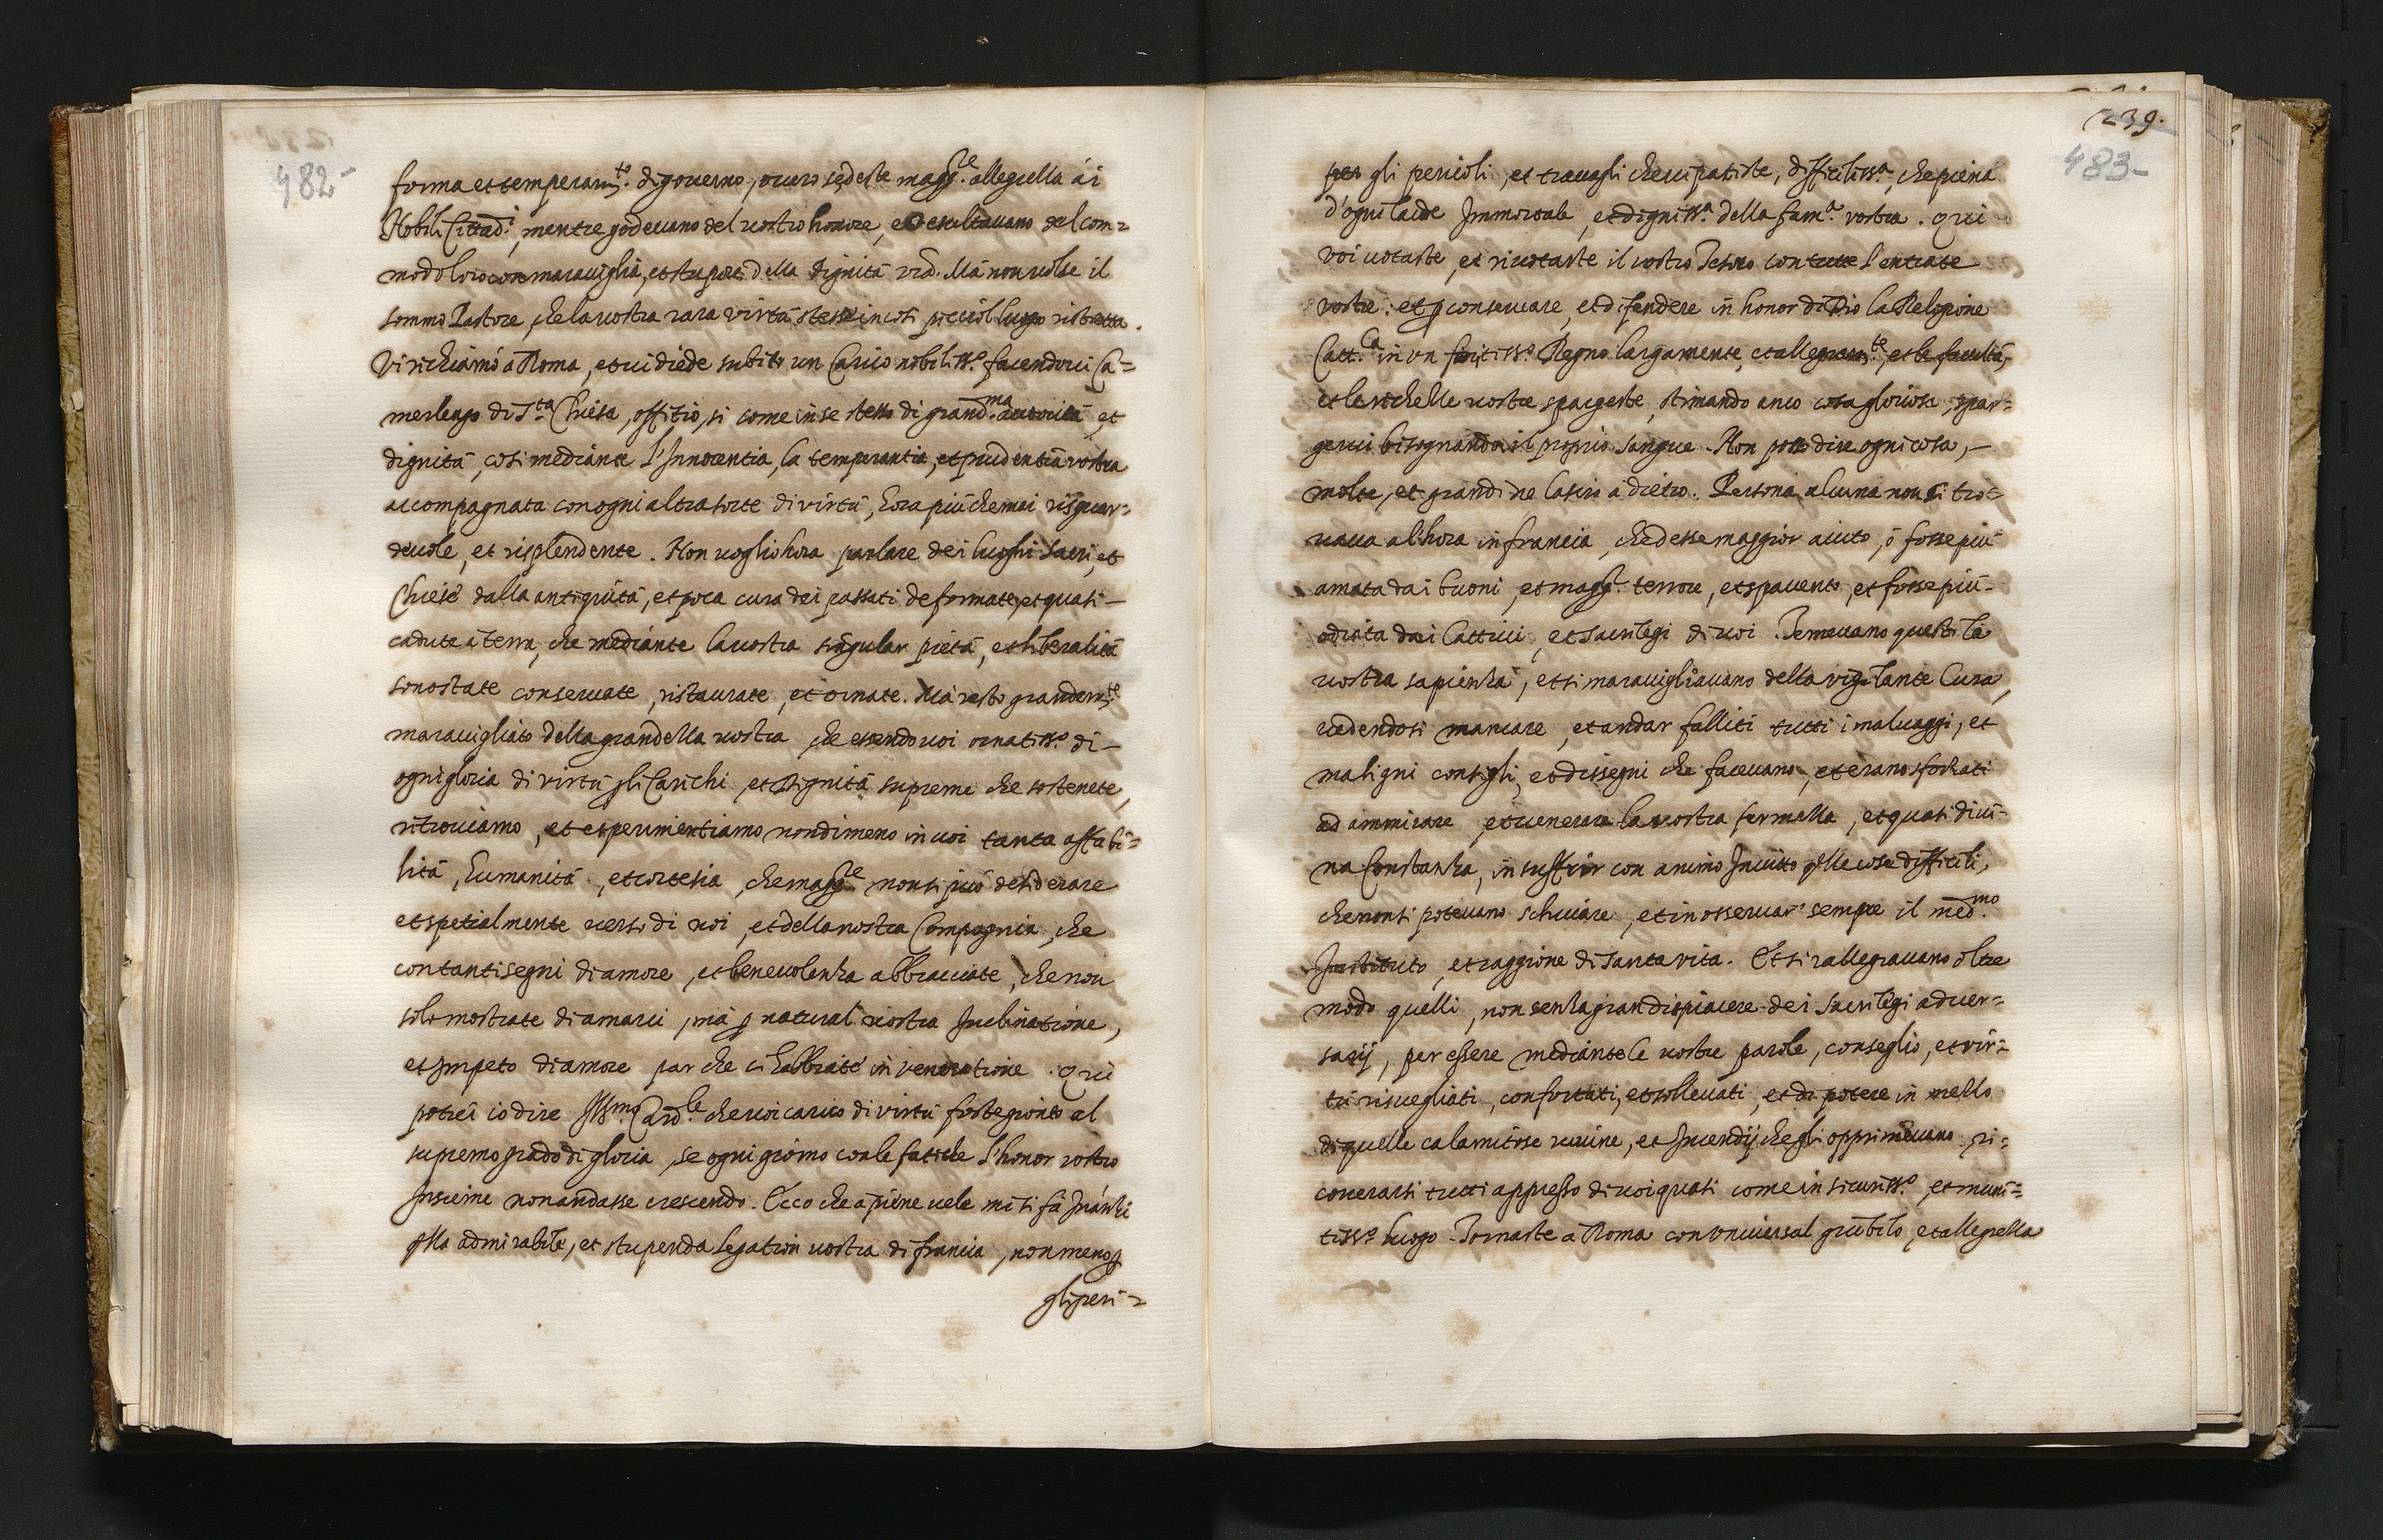 482
forma et temperam.to di gouerno, ouero se deste magg.re allegrezza ái
Nobili Cittad.i, mentre godeuano del uostro honore, et esultauano del com=
modo loro con marauiglia, et stupore della dignitá vra. Má non uolse il
sommo Pastore, che la uostra rara virtú stesse in cosi picciol luogo ristretta.
Vi richiamó á Roma, et ui diede subito un Carico nobiliss.o facendoui Ca=
merlengo di S.ta Chiesa, offitio, si come in se stesso di grand.ma autoritá et
dignitá, cosi mediante l'Innocentia, la temperantia, et prudentia vostra
accompagnata con ogni altra sorte di virtú, hora piú che mai risguar=
deuole, et risplendente. Non uoglio hora parlare dei luoghi Sacri, et
Chiese dalla antiquitá, et poca cura dei passati deformate, et quasi -
cadute á terra, che mediante la uostra singular pietá, et liberalitá
sono state conseruate, ristaurate, et ornate. Má resto grandem.te
marauigliato della grandezza uostra che essendo uoi ornatiss.o di -
ogni gloria di virtú gli Carichi, et dignitá supreme che sostenete,
ritrouiamo, et esperimentiamo nondimeno in uoi tanta affabi=
litá, humanitá, et cortesia, che magg.re non si può desiderare
et spetialmente uerso di noi, et della nostra Compagnia, che
con tanti segni di amore, et beneuolenza abbracciate, che non
solo mostrate di amarci, má p natural uostra Inclinatione,
et Impeto di amore par che ci habbiate in veneratione. Qui
potrei io dire Ill.mo Card.le che uoi carico di virtú foste gionto al
supremo grado di gloria, se ogni giorno con le fatiche l'honor vostro
Insieme non andasse crescendo. Ecco che á piene uele mi si fá Inánzi
qlla admirabile, et stupenda legation uostra di francia, non meno p
gli peri=
239.
483
per gli pericoli, et trauagli che ui patiste, difficiliss.a, che piena
d'ogni laude Immortale, et digniss.a della fam.a vostra. Qui
voi uotaste, et riuotaste il uostro Tesoro con tutte l'entrate
vostre: et p conseruare, et difendere in honor di Dio la Relogione
Catt.ca in un fioritiss.o Regno largamente, et allegram.te, et le facultá,
et le richezze uostre spargeste, stimando anco cosa gloriosa, spar=
gerui bisognando il proprio sangue. Non posso dire ogni cosa, -
molte, et grandi ne lascio á dietro. Persona alcuna non si tro=
uaua al'hora in francia, che desse maggior aiuto, ó fosse piú
amata dai buoni, et magg.r terrore, et spauento, et fosse piú -
odiata dai Cattiui, et Sacrilegi di uoi. Temeuano questi la
uostra sapienza, et si marauigliauano della vigilante Cura,
uedendosi mancare, et andar falliti tutti i maluaggi, et
maligni consigli, et dissegni che faceuano, et erano sforzati
ad ammirare, et uenerare la uostra fermezza, et quasi diui-
na Constanza, in suffrir con animo Inuitto qlle cose difficili,
che non si poteuano schiuare, et in osseruar sempre il med.mo
Instituto, et raggione di santa vita. Et si rallegrauano oltre
modo quelli, non senza gran dispiacere dei Sacrilegi aduer=
sarij, per essere mediante le uostre parole, conseglio, et vir=
tú risuegliati, confortati, et solleuati, et di potere in mezzo
di quelle calamitose ruuine, et Incendij che gli opprimeuano, ri=
couerarsi tutti appresso di uoi quasi come in sicuriss.o, et muni=
tiss.o luogo. Tornaste á Roma con vniuersal giubilo, et allegrezza